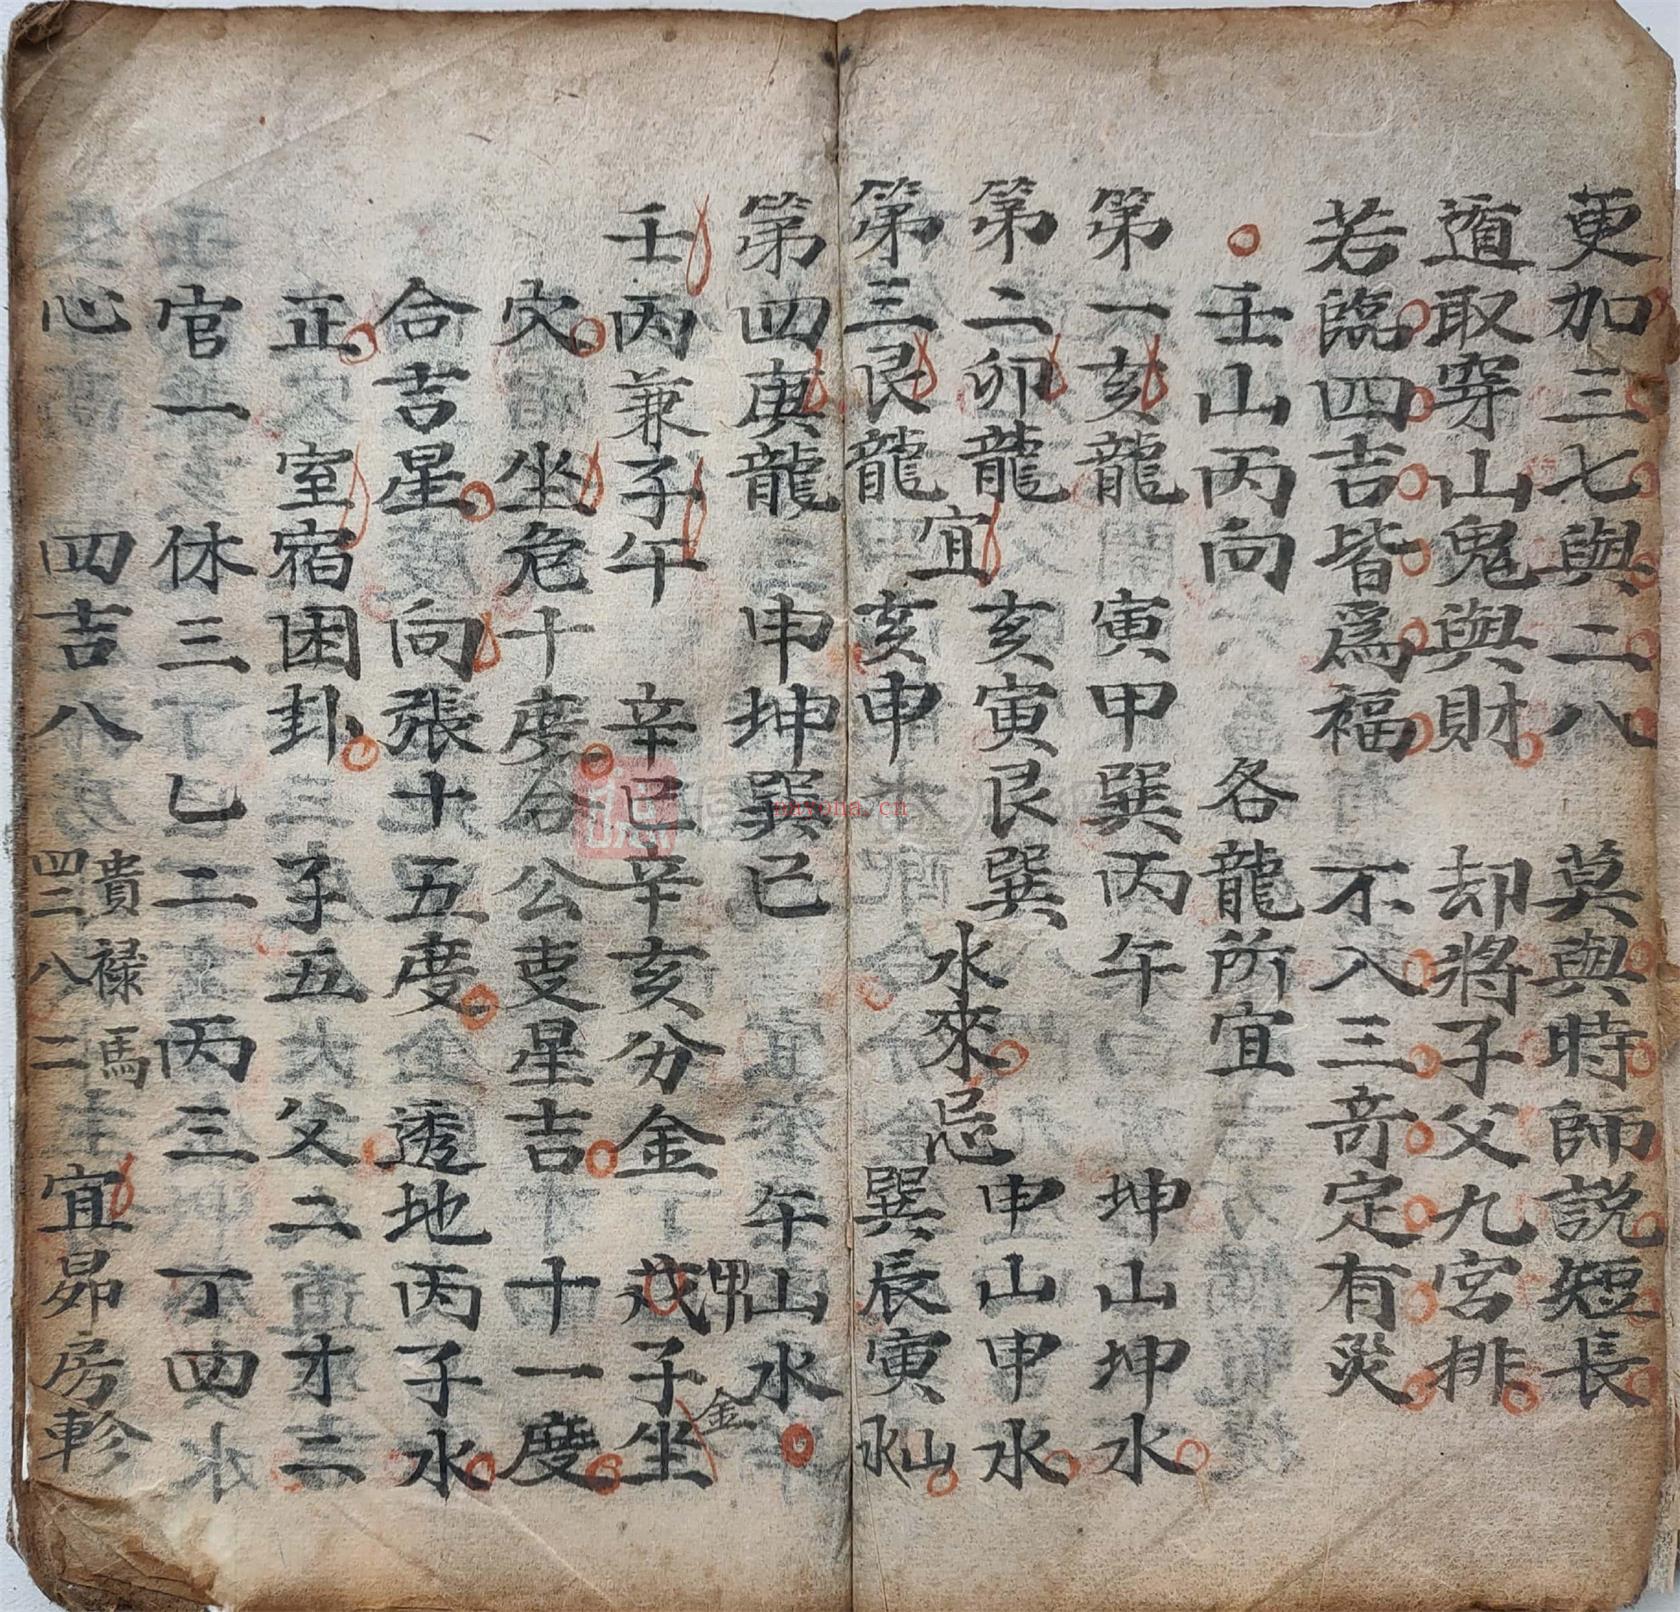 更加三七與二八 莫與時師説短長
遁取穿山鬼與財 却將子父九宮排
若臨四吉皆爲福 不入三奇定有災
壬山丙向 各龍所宜
第一亥龍 寅甲巽丙午 坤山坤水
第二卯龍 亥寅艮巽 申山申水
宜 水來忌
第三艮龍 亥申 巽辰寅山水
第四庚龍 申坤巽巳 午山水
壬丙兼子午 辛巳辛亥分金 戊子坐
甲 金
穴 坐危十度合公吏星吉 十一度
合吉星 向張十五度 透地丙子水
正 室宿困卦 子五 父二才二
官一 休三 乙二丙三 丁四
心 四吉八 貴四二 祿八 馬二 宜昴房軫
nayona.cn